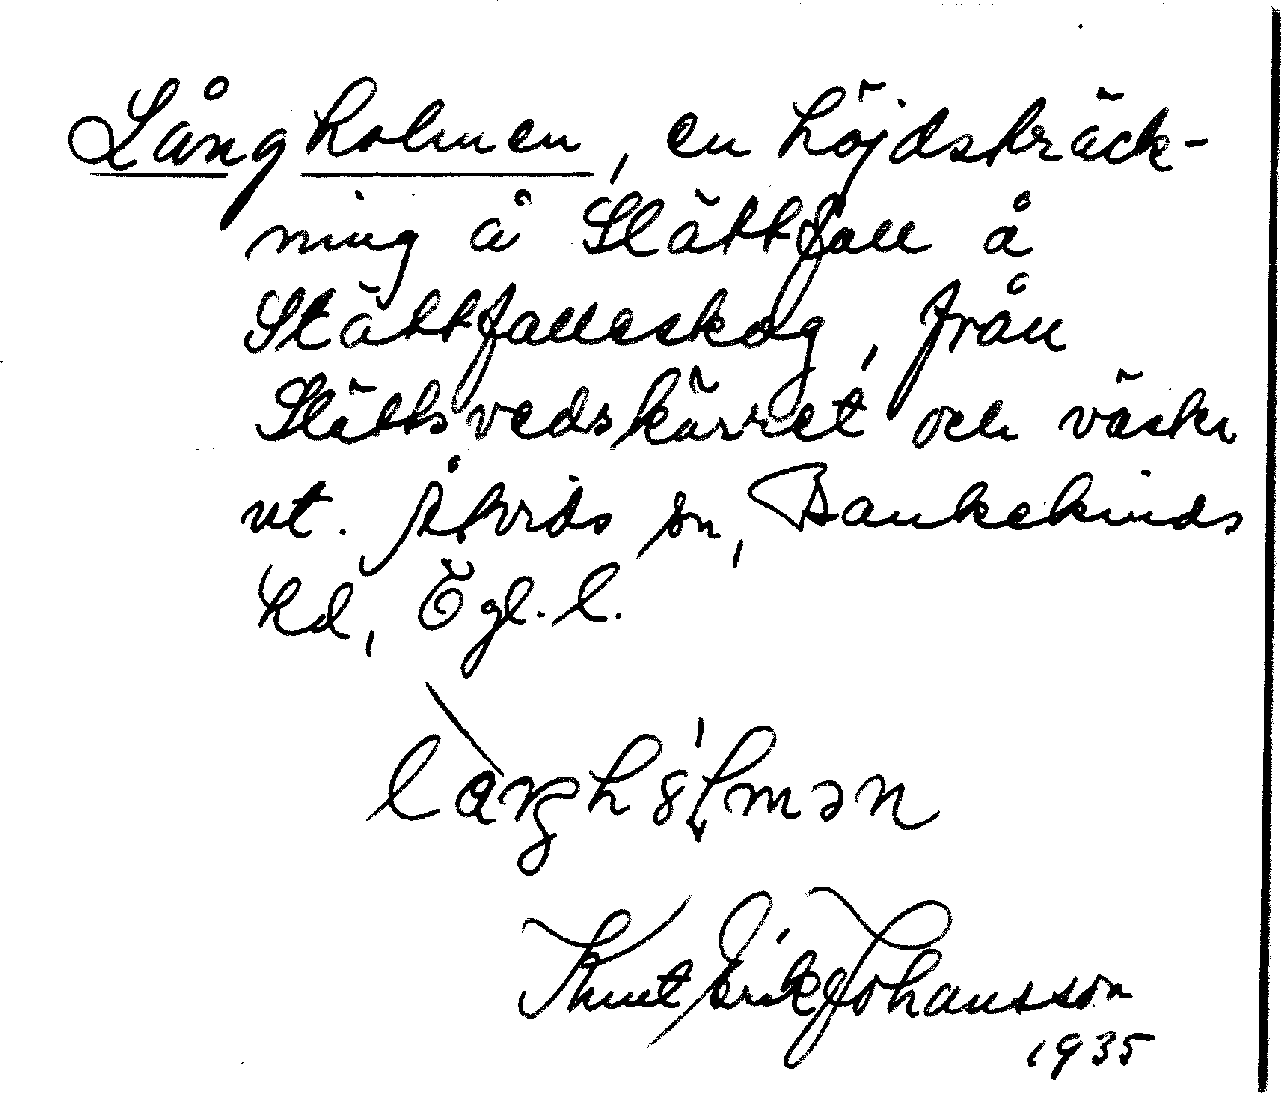 Långholmen, en höjdsträck-
ning å Slättfall å
Slättfalleskog, från
Slättsvedskärret och väster
ut. Åtvids sn, Bankekinds
hd, Ögl. l.
Knut Erik Johansson
1935